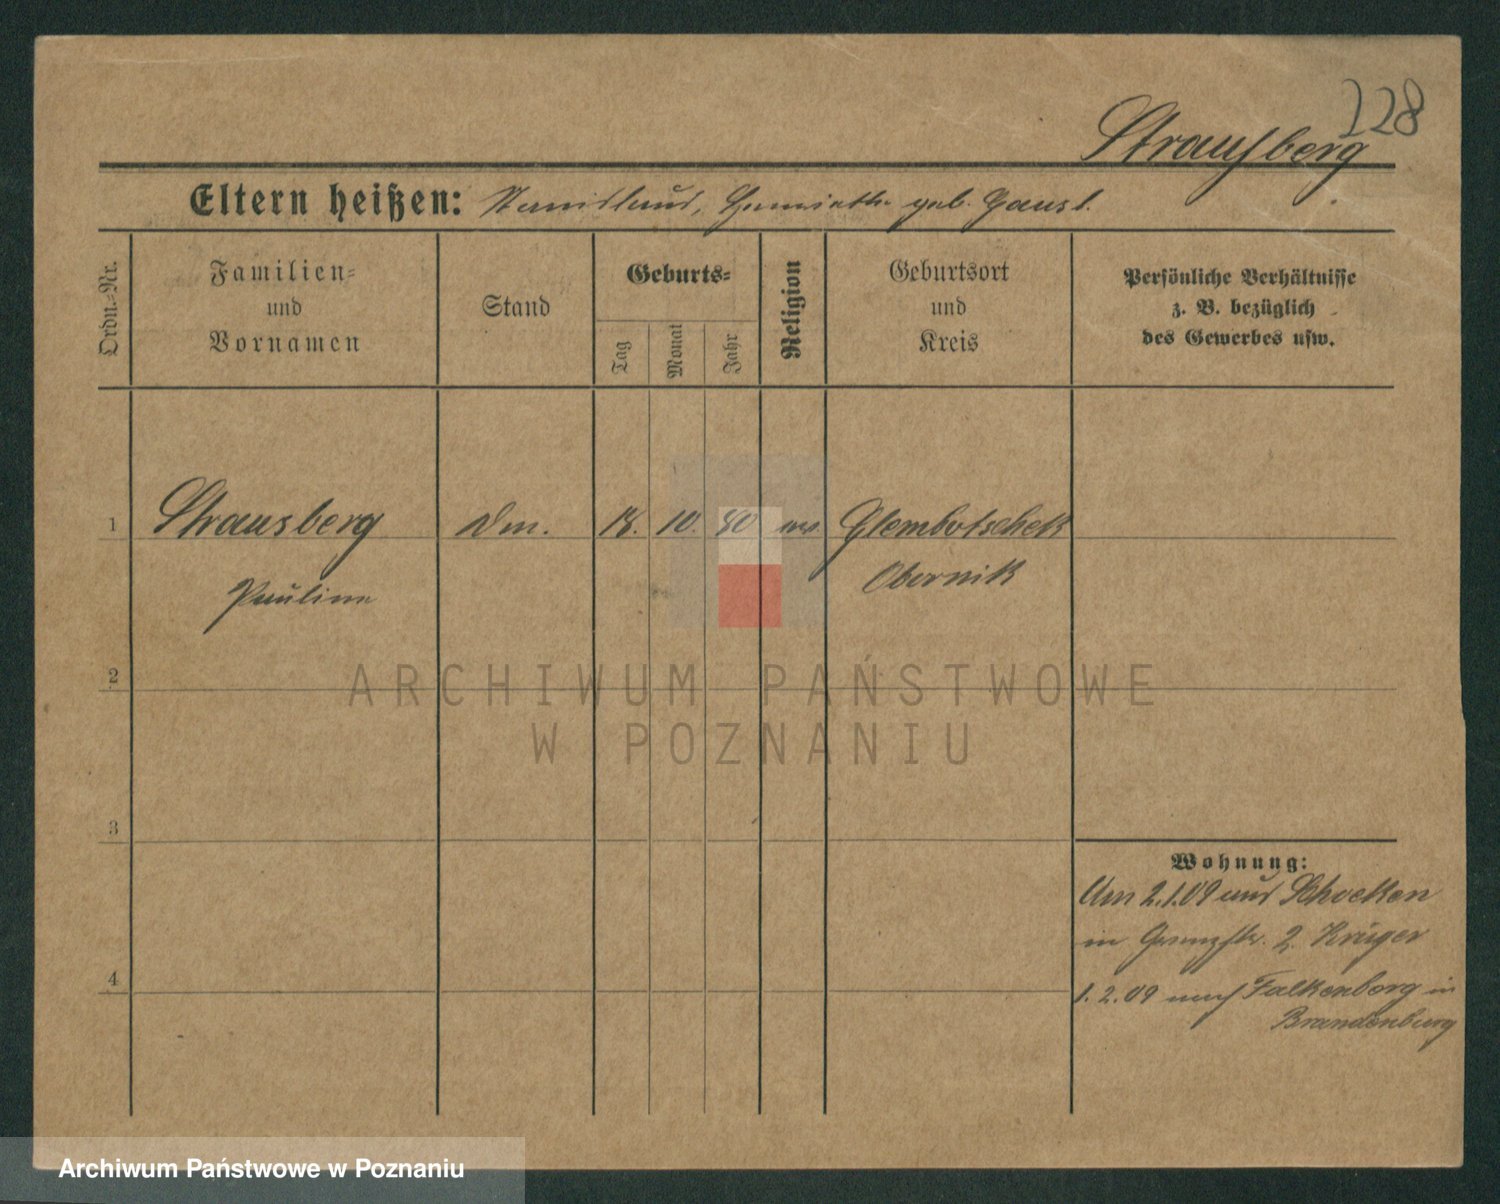 228
Strausberg
Eltern heißen: Henriette geb.
Ordn.=Nr.
Familien=
und
Vornamen
Stand
Geburts=
Tag
Monat
Jahr
Religion
Geburtsort
und
Kreis
Persönliche Verhältnisse
z. B. bezüglich
des Gewerbes usw.
1 Strausberg 10. 80 Glembotschek
Pauline Obernik
2
ARCHIWUM PAŃSTWOWE
W POZNANIU
3
Wohnung:
Am 2.1.09 aus Schocken
in 2. Krüger
4
1.2.09 nach Falkenberg in
Brandenburg
Archiwum Państwowe w Poznaniu